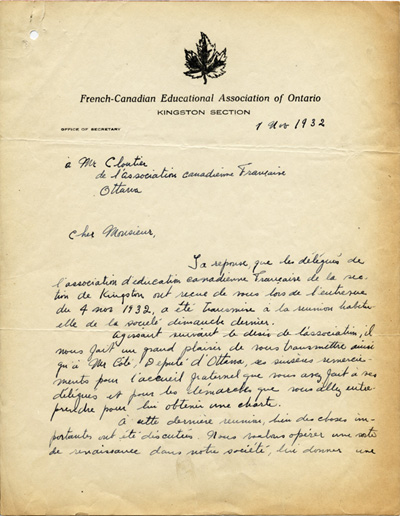 French-Canadian Educational Association of Ontario
KINGSTON SECTION
OFFICE OF SECRETARY
1 Nov 1932
à Mr Cloutier
de l'association canadienne Française
Ottawa
Cher Monsieur,
La réponse, que les délégués de
l'association d'education canadienne Française de la sec-
tion de Kingston ont reçue de vous lors de l'entrevue
du 4 nov 1932, a été transmise à la réunion habitu-
elle de la société dimanche dernier.
Agissant suivant le désir de l'association, il
nous fait un grand plaisir de vous transmettre ainsi
qu'à Mr Coté, Député d'Ottawa, ses sincères remercie-
ments pour l'accueil fraternel que vous avez fait à ses
délégués et pour les démarches que vous allez entre-
prendre pour lui obtenir une charte.
À cette dernière réunion, bien des choses im-
portantes ont été discutées. Nous voulons opérer une sorte
de renaissance dans notre société, lui donner une